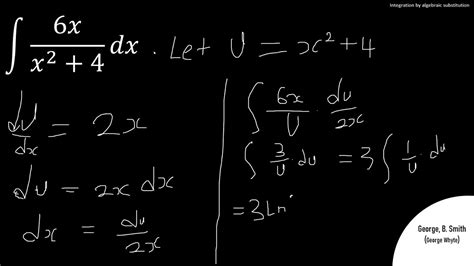 Integration by algebraic substitution
∫ 6x/(x² + 4) dx . Let U = x²+4
du/dx = 2x
du = 2x dx
dx = du/2x
∫ 6x/U · du/2x
∫ 3/U · du = 3 ∫ 1/U · du
= 3Ln
George, B. Smith
(George Whyte)